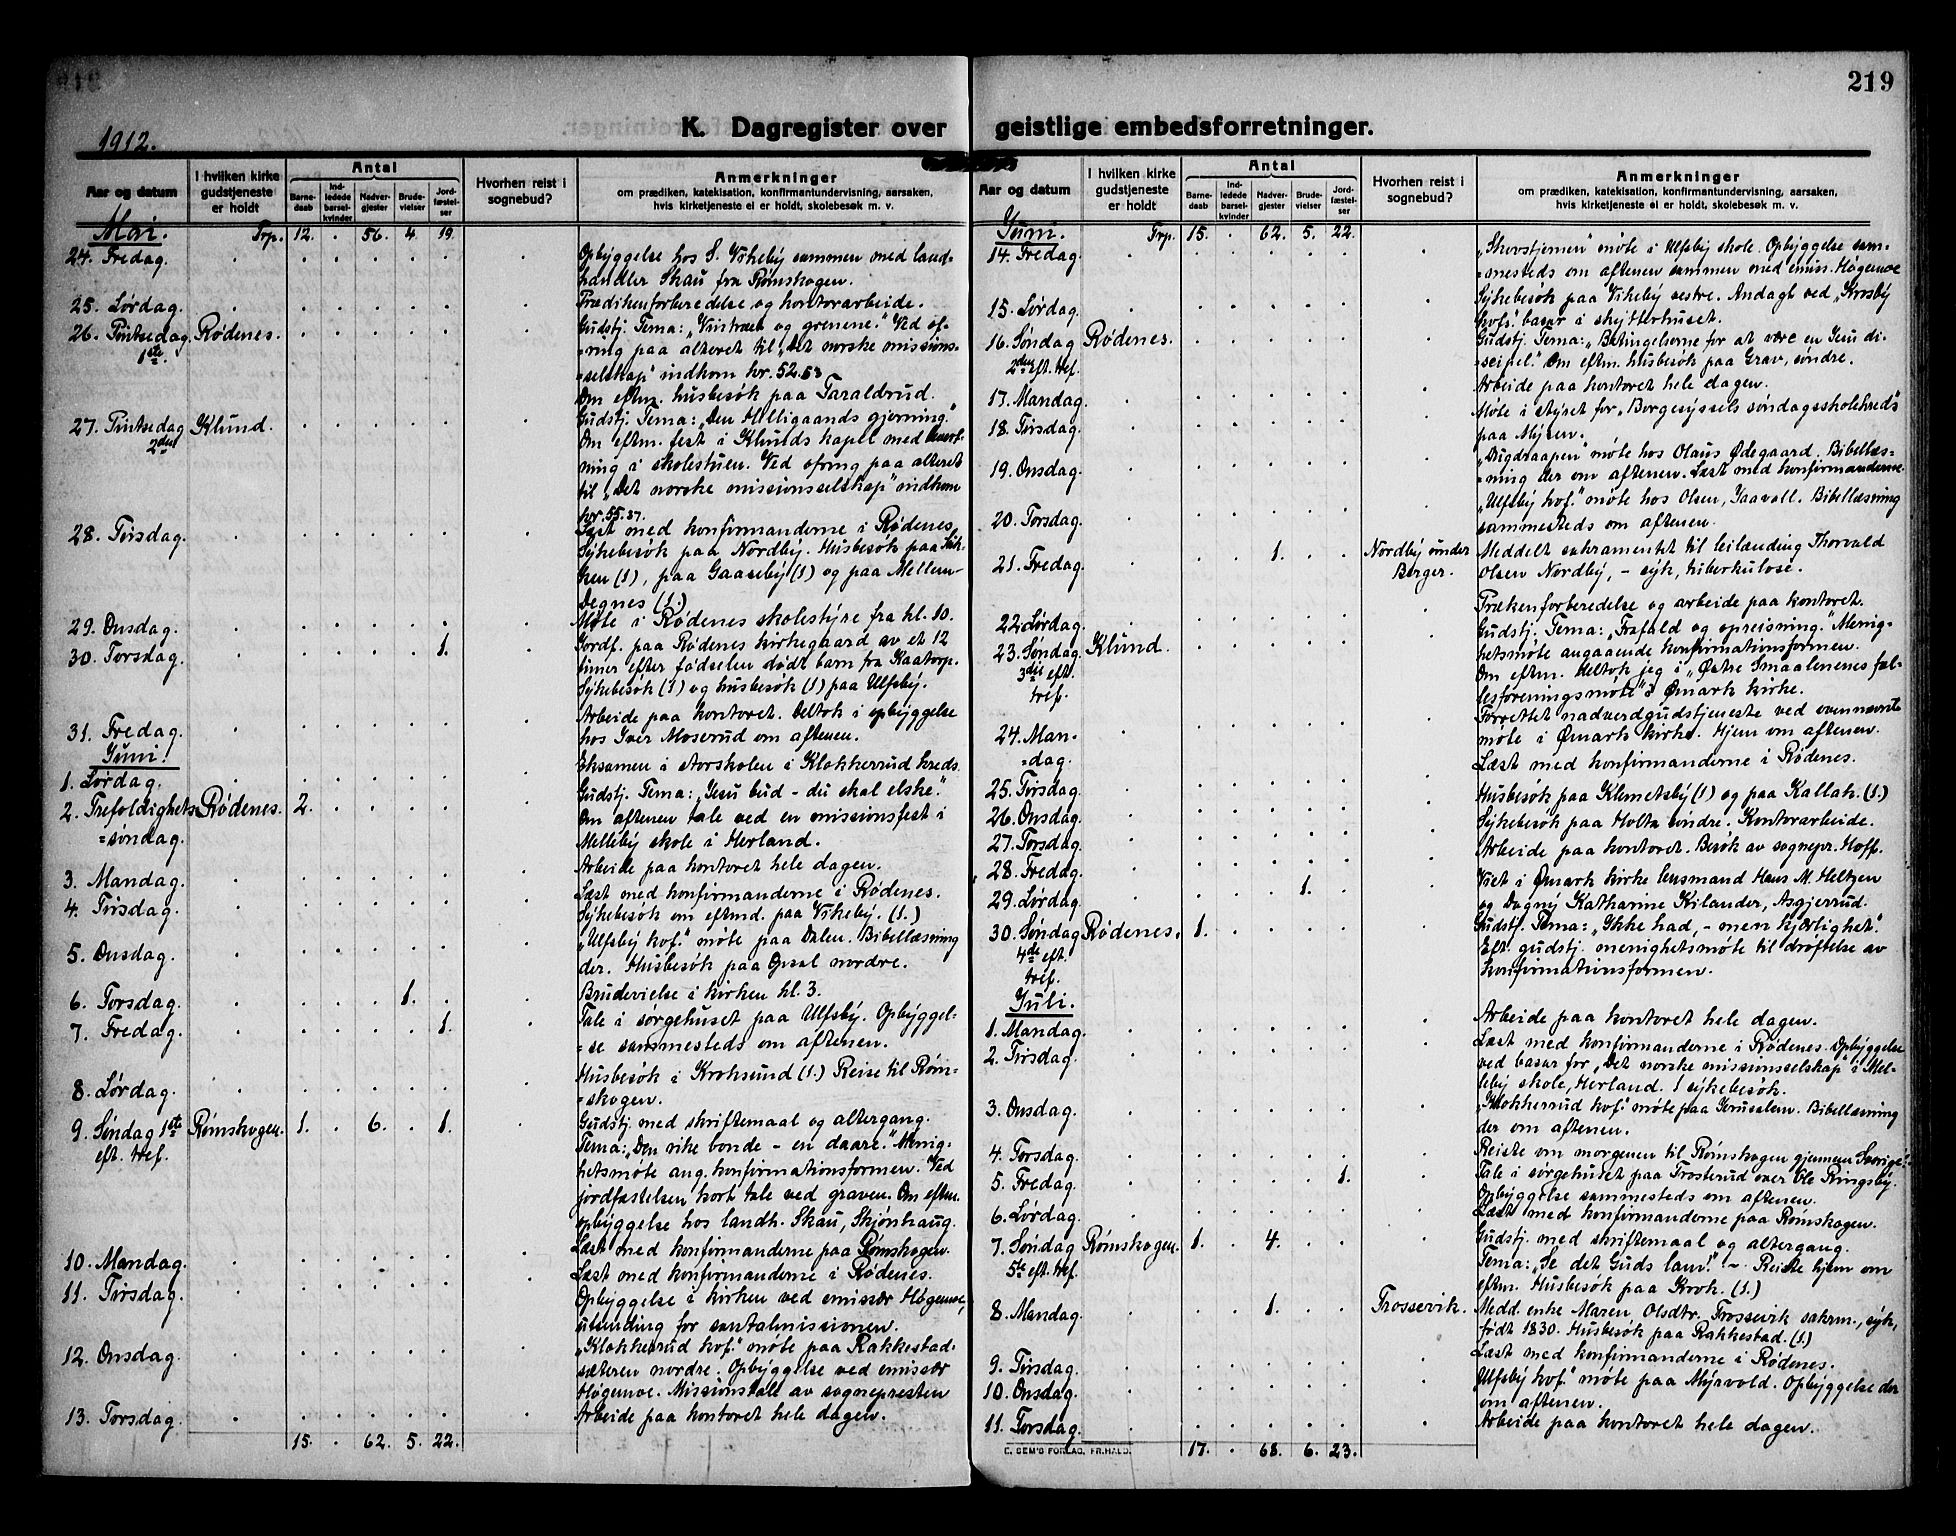 219
K. Dagregister over geistlige embedsforretninger.
1912.
Aar og datum
I hvilken kirke gudstjeneste er holdt
Antal
Barnedaab
Indledede barselkvinder
Nadvergjester
Brudevielser
Jordfæstelser
Hvorhen reist i sognebud?
Anmerkninger
om prædiken, katekisation, konfirmantundervisning, aarsaken, hvis kirketjeneste ei er holdt, skolebesøk m. v.
Mai. Trp. 12. . 56. 4. 19.
24. Fredag. Opbyggelse hos S. Vikeby sammen med land-
handler Skau fra Rømskogen.
25. Lørdag. Prædikenforberedelse og kontorarbeide.
26. Pintsedag Rødenes. Gudstj. Tema: "Vintræet og grenene." Ved of-
1ste. =ring paa alteret til "Det norske missions-
=selskap" indkom kr. 52.53
Om eftm. husbesøk paa Taraldrud.
27. Pintsedag Klund. Gudstj. Tema: "Den Helligaands gjerning."
2den Om eftm. fest i Klunds kapel med bevert-
ning i skolestuen. Ved ofring paa alteret
til "Det norske missionsselskap" indkom
kr. 55.37.
28. Tirsdag. Læst med konfirmanderne i Rødenes.
Sykebesøk paa Nordby. Husbesøk paa
(1), paa Gaaseby (1) og paa Mellem-
Degnes (1.)
29. Onsdag. Møte i Rødenes skolestyre fra kl. 10.
30. Torsdag. 1. Jordf. paa Rødenes kirkegaard av et 12
timer efter fødselen dødt barn fra Kaatorp.
Sykebesøk (1) og husbesøk (1) paa Ulfsby.
31. Fredag. Arbeide paa kontoret. Deltok i opbyggelse
hos Iver Moserud om aftenen.
Juni.
1. Lørdag. Eksamen i storskolen i Klokkerrud kreds.
2. Trefoldighets- Rødenes. 2. Gudstj. Tema: "Jesu bud - du skal elske."
=søndag. Om aftenen tale ved en missionsfest i
Melleby skole i Herland.
3. Mandag. Arbeide paa kontoret hele dagen.
4. Tirsdag. Læst med konfirmanderne i Rødenes.
Sykebesøk om eftmd. paa Vikeby. (1.)
5. Onsdag. "Ulfsby kvf." møte paa Dalen. Bibellæsning
der. Husbesøk paa Opsal nordre.
6. Torsdag. 1. Brudevielse i kirken kl. 3.
7. Fredag. 1. Tale i sørgehuset paa Ulfsby. Opbyggel-
=se sammesteds om aftenen.
8. Lørdag. Husbesøk i Kroksund (1.) Reise til Røm-
=skogen.
9. Søndag 1ste Rømskogen. 1. . 6. . 1. Gudstj. med skriftemaal og altergang.
eft. tref. Tema: "Den rike bonde - en daare." Menig-
hetsmøte ang. konfirmationsformen. Ved
jordfæstelsen kort tale ved graven. Om eftm.
opbyggelse hos landh. Skau, Skjønhaug.
10. Mandag. Læst med konfirmanderne paa Rømskogen.
11. Tirsdag. Læst med konfirmanderne i Rødenes.
Opbyggelse i kirken ved emissær Høgemoe,
utsending for santalmissionen.
12. Onsdag. "Klokkerrud kvf." møte paa Rakkestad-
sæteren nordre. Opbyggelse ved emissær
Høgemoe. Missionstale av sognepresten
13. Torsdag. Arbeide paa kontoret hele dagen.
15. . 62. 5. 22.
Aar og datum
I hvilken kirke gudstjeneste er holdt
Antal
Barnedaab
Indledede barselkvinder
Nadvergjester
Brudevielser
Jordfæstelser
Hvorhen reist i sognebud?
Anmerkninger
om prædiken, katekisation, konfirmantundervisning, aarsaken, hvis kirketjeneste ei er holdt, skolebesøk m. v.
Juni. Trp. 15. . 62. 5. 22.
14. Fredag. møte i Ulfsby skole. Opbyggelse sam-
=mesteds om aftenen sammen med emiss. Høgemoe
15. Lørdag. Sykebesøk paa Vikeby vestre. Andagt ved "Krosby
kvfs." basar i skytterhuset.
16. Søndag Rødenes. Gudstj. Tema: "Betingelserne for at være en Jesu di-
2den eft. tref. scipel." Om eftm. husbesøk paa Grav, søndre.
17. Mandag. Arbeide paa kontoret hele dagen.
18. Tirsdag. Møte i styret for "Borgesyssels søndagsskolekreds"
paa Mysen.
19. Onsdag. "Dugdraapen" møte hos Olaus Ødegaard. Bibellæs-
=ning der om aftenen. Læst med konfirmanderne.
20. Torsdag. "Ulfsby kvf." møte hos Olsen, Jaavall. Bibellæsning
sammesteds om aftenen.
21. Fredag. 1. Nordby under Berger. Meddelt sakramentet til leilænding Thorvald
Olsen Nordby, - syk, tuberkulose.
22. Lørdag. Prækenforberedelse og arbeide paa kontoret.
23. Søndag Klund. Gudstj. Tema: "Frafald og opreisning." Menig-
3die eft. tref. hetsmøte angaaende konfirmationsformen.
Om eftm. deltok jeg i "Østre Smaalenenes fæl-
lesforeningsmøte" i Ømark kirke.
24. Man- Forrettet nadverdgudstjeneste ved ovennævnte
=dag. møte i Ømark kirke. Hjem om aftenen.
25. Tirsdag. Læst med konfirmanderne i Rødenes.
26. Onsdag. Husbesøk paa Klemetsby (1) og paa Kallak. (1.)
27. Torsdag. Sykebesøk paa Holta søndre. Kontorarbeide.
28. Fredag. Arbeide paa kontoret. Besøk av sognepr. Hoff.
29. Lørdag. 1. Viet i Ømark kirke lensmand Hans M. Heltzen
og Dagny Katharine Kilander, Asgjerrud.
30. Søndag Rødenes. 1. Gudstj. Tema: "Ikke had, - men kjærlighet."
4de eft. tref. Eft. gudstj. menighetsmøte til drøftelse av
konfirmationsformen.
Juli.
1. Mandag. Arbeide paa kontoret hele dagen.
2. Tirsdag. Læst med konfirmanderne i Rødenes. Opbyggelse
ved basar for "Det norske missionsselskap" i Mel-
leby skole, Herland. 1 sykebesøk.
3. Onsdag. "Klokkerrud kvf." møte paa Jerusalem. Bibellæsning
der om aftenen.
4. Torsdag. Reiste om morgenen til Rømskogen gjennem Sverige.
5. Fredag. 1. Tale i sørgehuset paa Trosterud over Ole Ringsby.
Opbyggelse sammesteds om aftenen.
6. Lørdag. Læst med konfirmanderne paa Rømskogen.
7. Søndag Rømskogen. 1. . 4. Gudstj. med skriftemaal og altergang.
5te eft. tref. Tema: "Se det Guds lam!" - Reiste hjem om
eftm. Husbesøk paa Krok. (1.)
8. Mandag. 1. Trossevik. Medd. enke Maren Olsdtr. Trossevik sakrm., syk,
født 1830. Husbesøk paa Rakkestad. (1.)
9. Tirsdag. Læst med konfirmanderne i Rødenes.
10. Onsdag. Ulfsby kvf." møte paa Myrvold. Opbyggelse der
om aftenen.
11. Torsdag. Arbeide paa kontoret hele dagen.
17. . 68. 6. 23.
E. SEM'S FORLAG, FR.HALD.